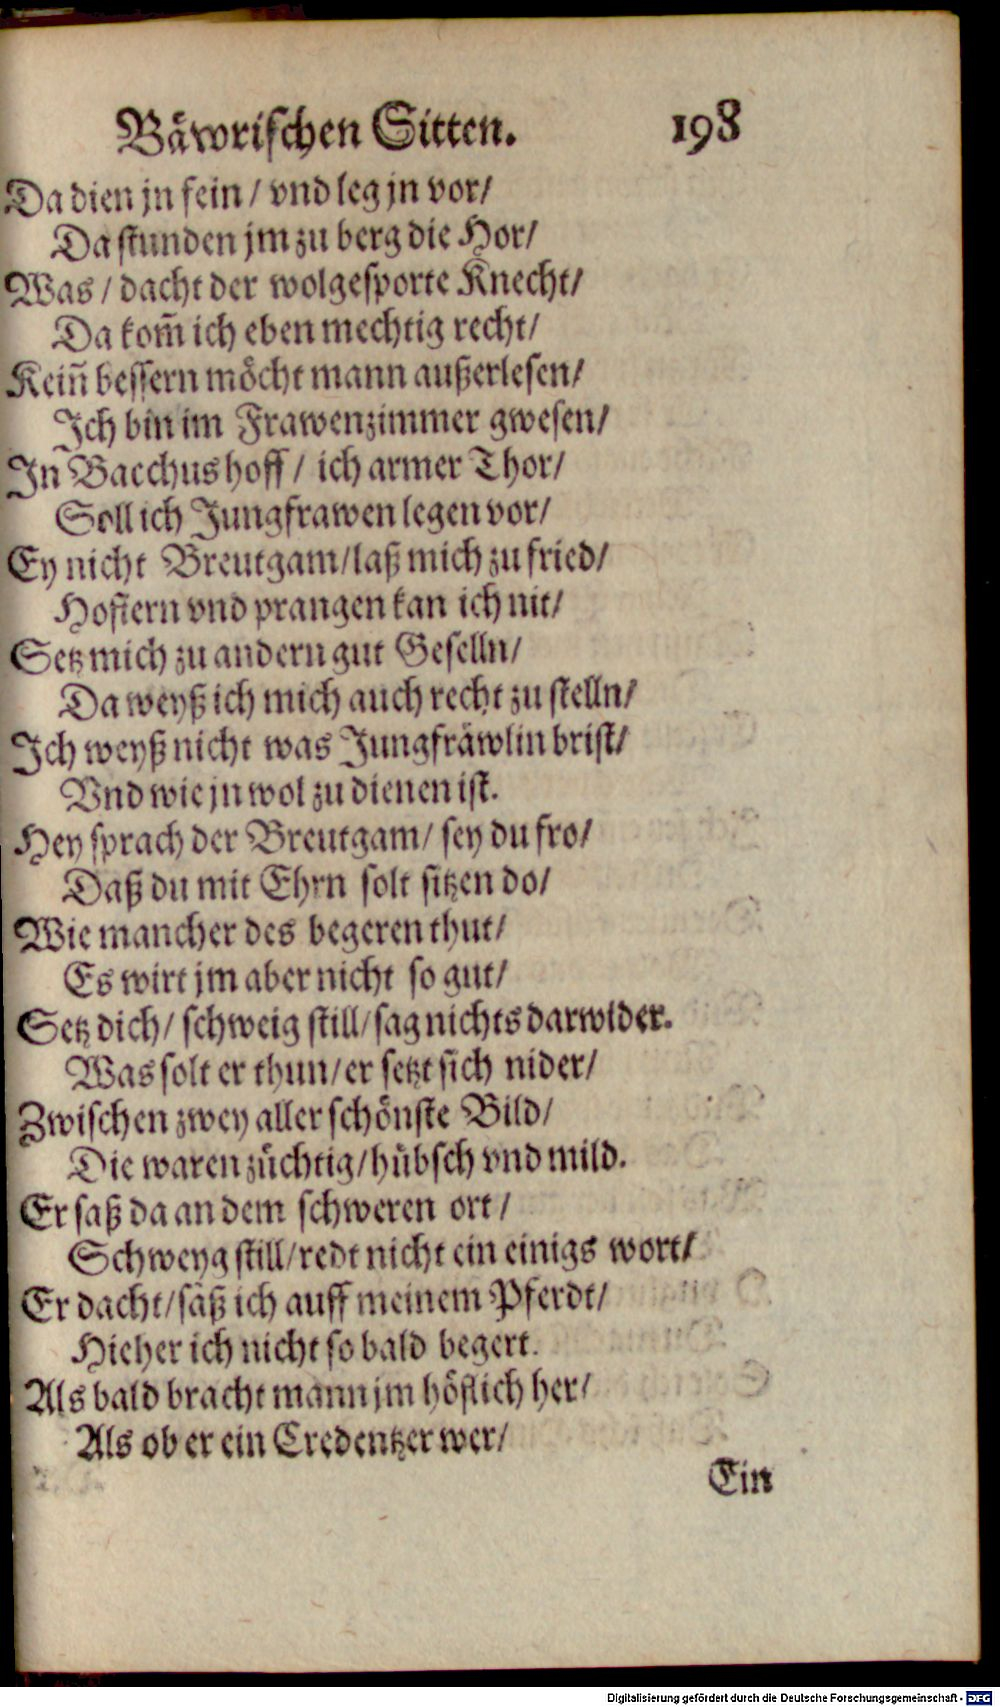 Bäwrischen Sitten. 198
Da dien jn fein / vnd leg jn vor/
Da stunden jm zu berg die Hor/
Was / dacht der wolgesporte Knecht/
Da kom̃ ich eben mechtig recht/
Kein̄ bessern möcht mann außerlesen/
Ich bin im Frawenzimmer gwesen/
In Bacchus hoff / ich armer Thor/
Soll ich Jungfrawen legen vor/
Ey nicht Breutgam/laß mich zu fried/
Hofiern vnd prangen kan ich nit/
Setz mich zu andern gut Geselln/
Da weyß ich mich auch recht zu stelln/
Ich weyß nicht was Jungfräwlin brist/
Vnd wie jn wol zu dienen ist.
Hey sprach der Breutgam/ sey du fro/
Daß du mit Ehrn solt sitzen do/
Wie mancher des begeren thut/
Es wirt jm aber nicht so gut/
Setz dich/ schweig still/sag nichts darwider.
Was solt er thun/er setzt sich nider/
Zwischen zwey aller schönste Bild/
Die waren züchtig/hübsch vnd mild.
Er saß da an dem schweren ort/
Schweyg still/redt nicht ein einigs wort/
Er dacht/säß ich auff meinem Pferdt/
Hieher ich nicht so bald begert.
Als bald bracht mann jm höflich her/
Als ob er ein Credentzer wer/
Ein
Digitalisierung gefördert durch die Deutsche Forschungsgemeinschaft - DFG